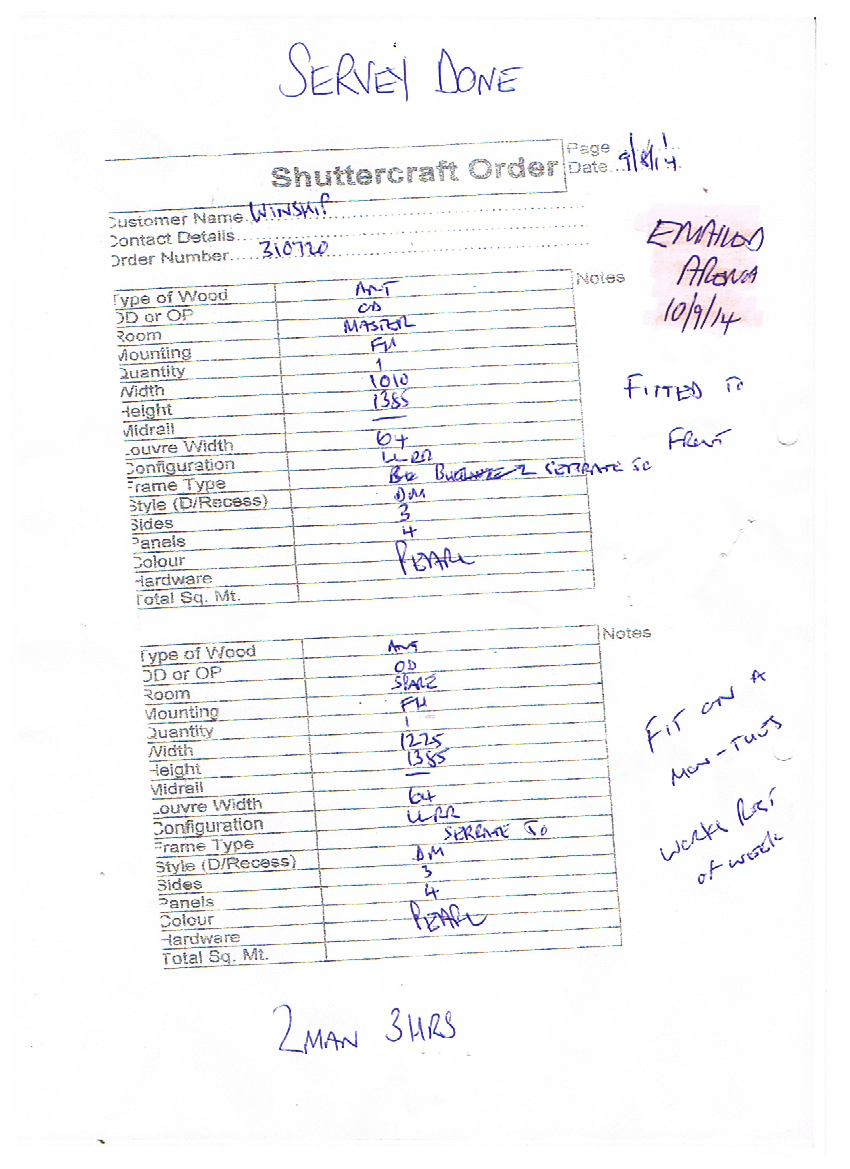 SERVEY DONE
Page 1/1
Shuttercraft Order
Date 9/8/14
Customer Name WINSHIP
Contact Details
Order Number 310720
EMAILED
ARENA
10/9/14
Notes
Type of Wood ANT
OD or OP OD
Room MASTER
Mounting FM
Quantity 1
Width 1010
Height 1385
Midrail —
Louvre Width 64
Configuration LLRR
Frame Type SEPERATE TO
Style (D/Recess) DM
Sides 3
Panels 4
Colour PEARL
Hardware
Total Sq. Mt.
FITTED TO
FRONT
Notes
Type of Wood ANT
OD or OP OD
Room SPARE
Mounting FM
Quantity 1
Width 1225
Height 1385
Midrail —
Louvre Width 64
Configuration LLRR
Frame Type SEPRATE TO
Style (D/Recess) DM
Sides 3
Panels 4
Colour PEARL
Hardware
Total Sq. Mt.
FIT ON A
MON - TUES
WORKS REST
OF WEEK
2 MAN 3HRS